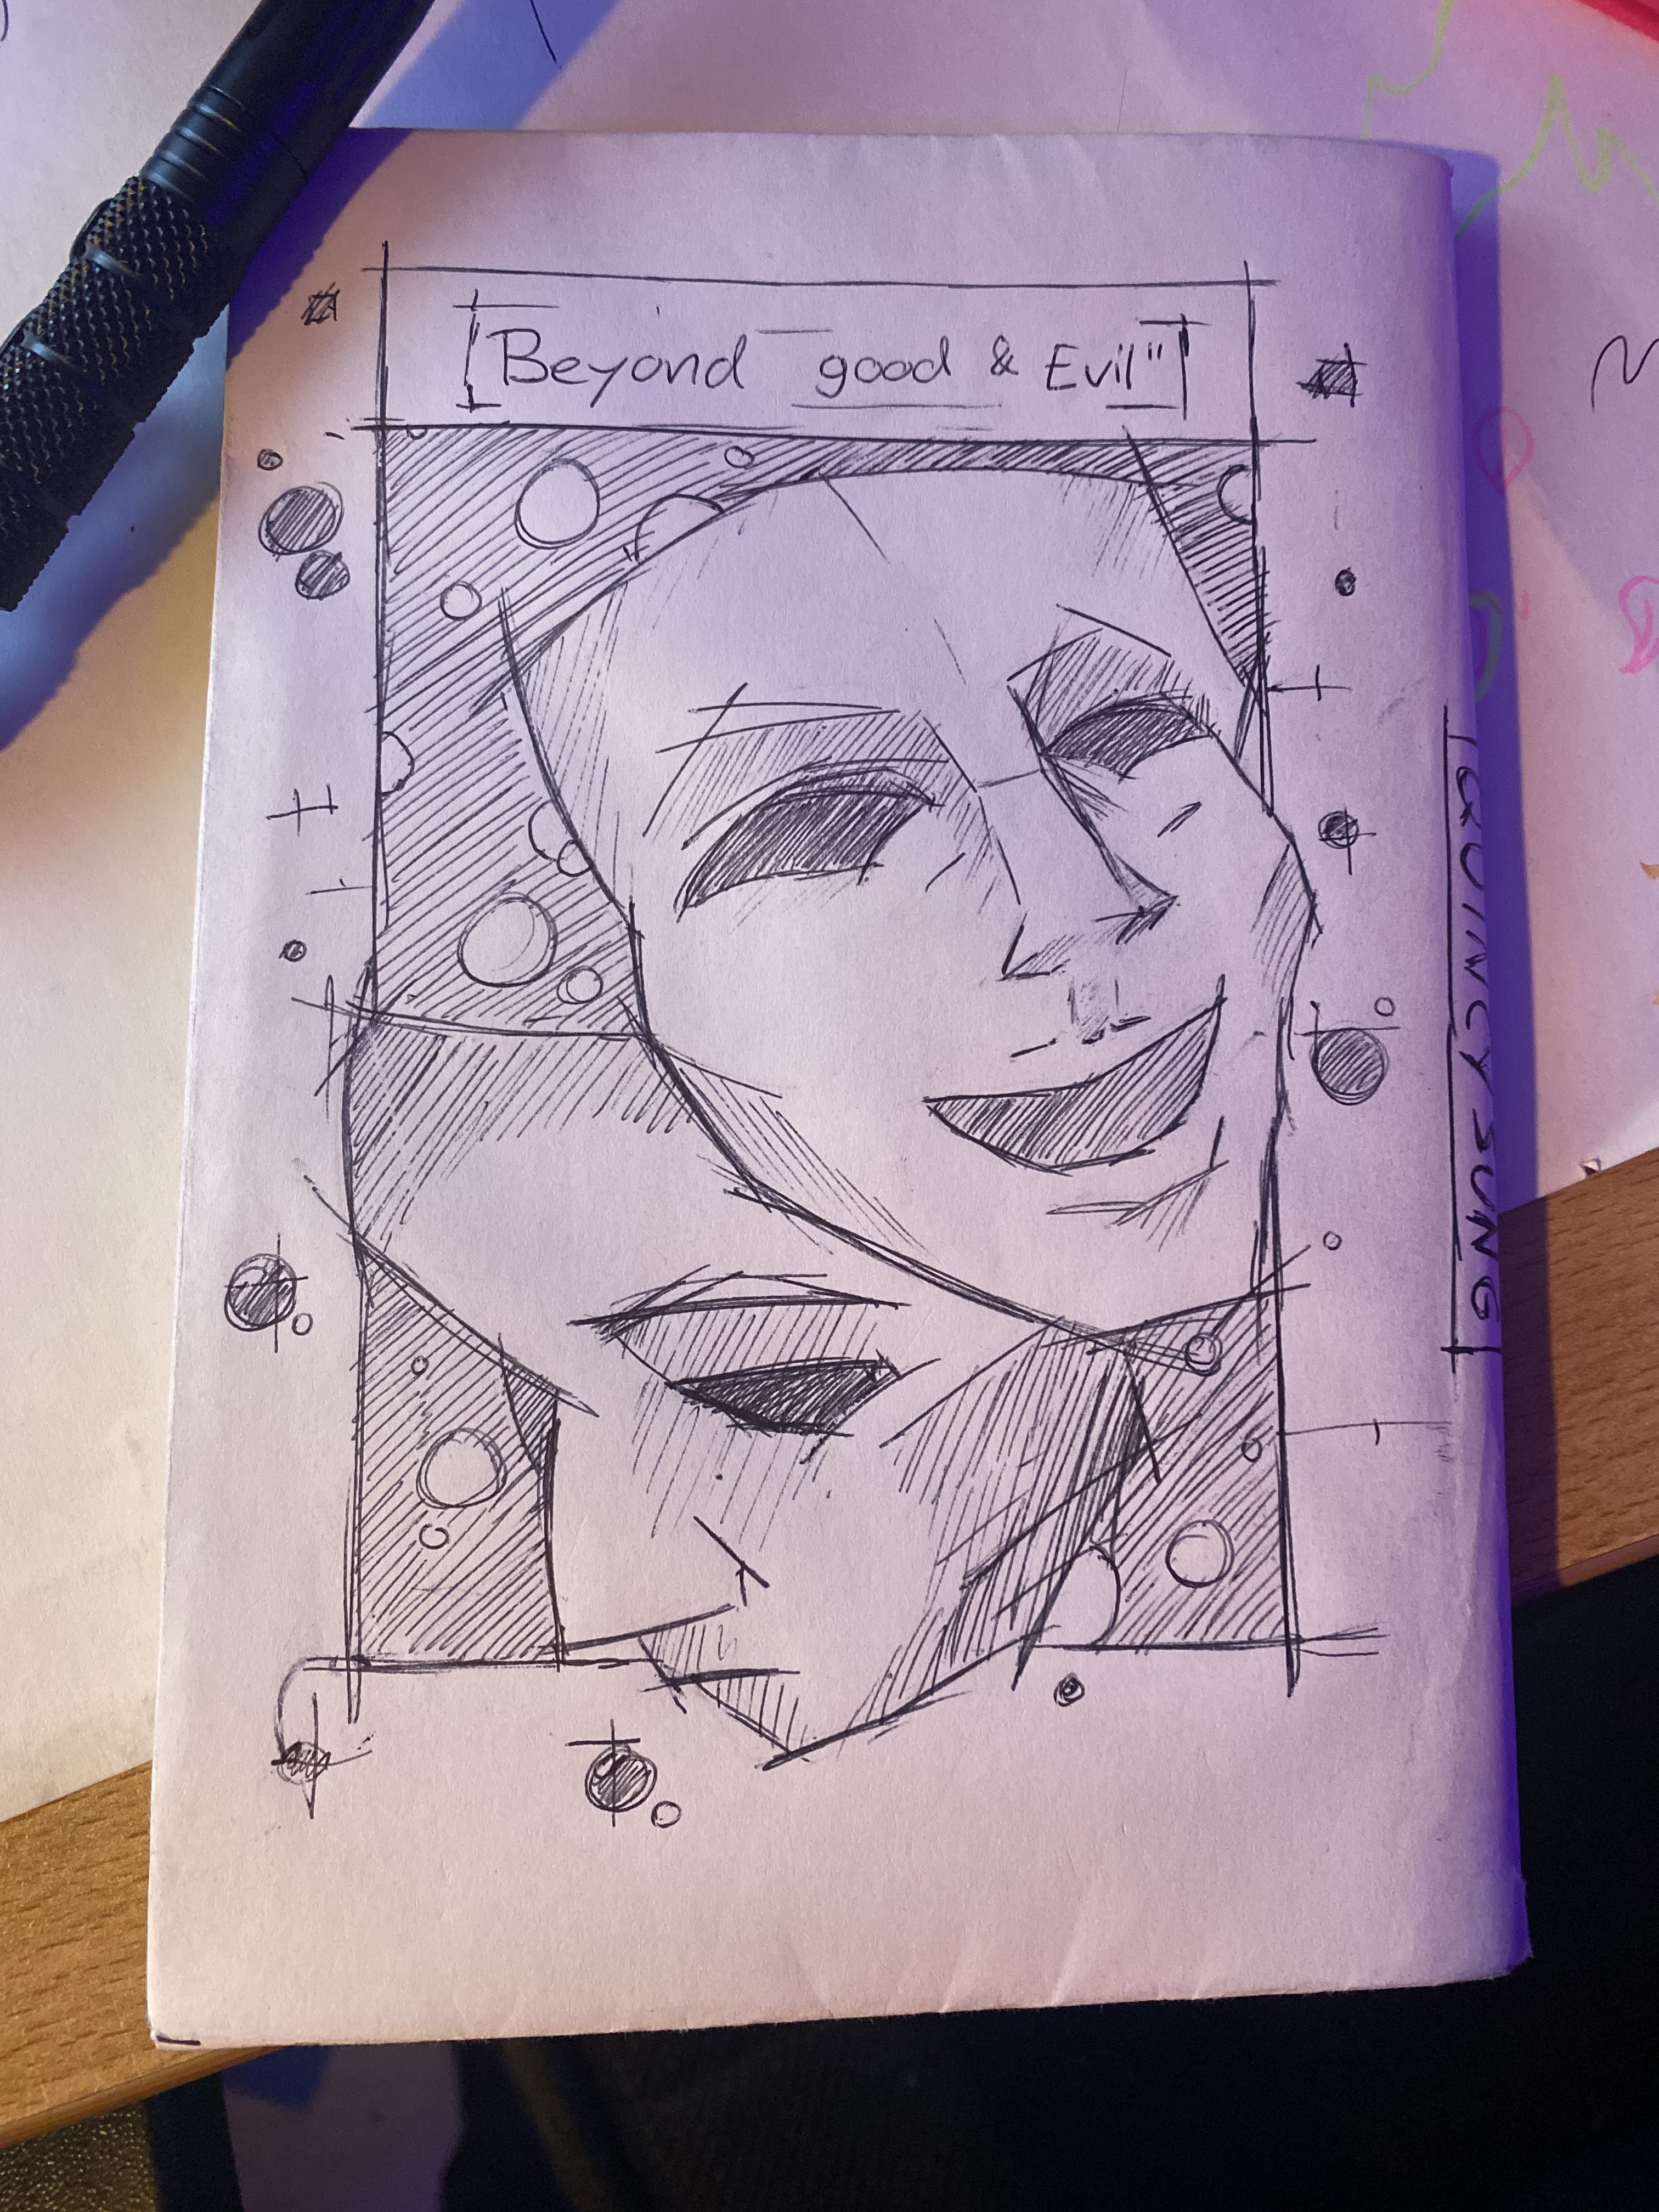 "Beyond good & Evil"
QUINCY SUNG